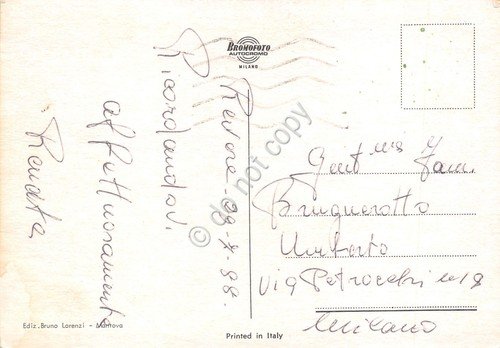 BROMOFOTO
AUTOCROMO
MILANO
Revere - 29-7-88.
Ricordandovi
affettuosamente
Renata
Gent.ma Fam.
Brugnerotto
Umberto
Via Petrocchi n. 9
Milano
© do not copy
Ediz. Bruno Lorenzi - Mantova
Printed in Italy